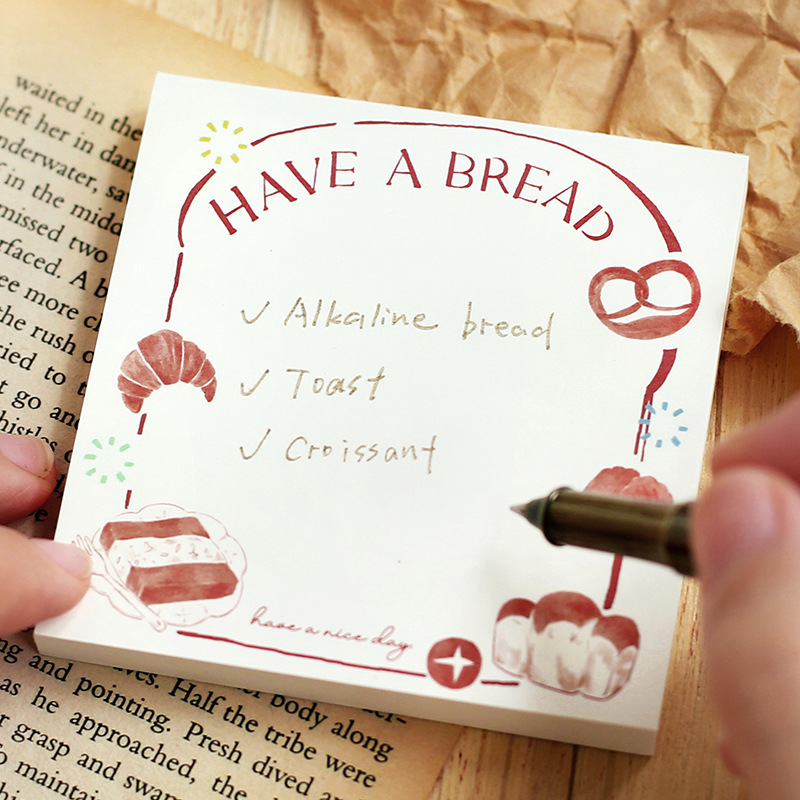 HAVE A BREAD
✓ Alkaline bread
✓ Toast
✓ Croissant
have a nice day
waited in the
left her in
underwater,
in the
missed two
A
see more
the rush
to
go and
and pointing.
body along
as he approached, the
Half the tribe were
grasp and swam
Presh dived and
to maintain